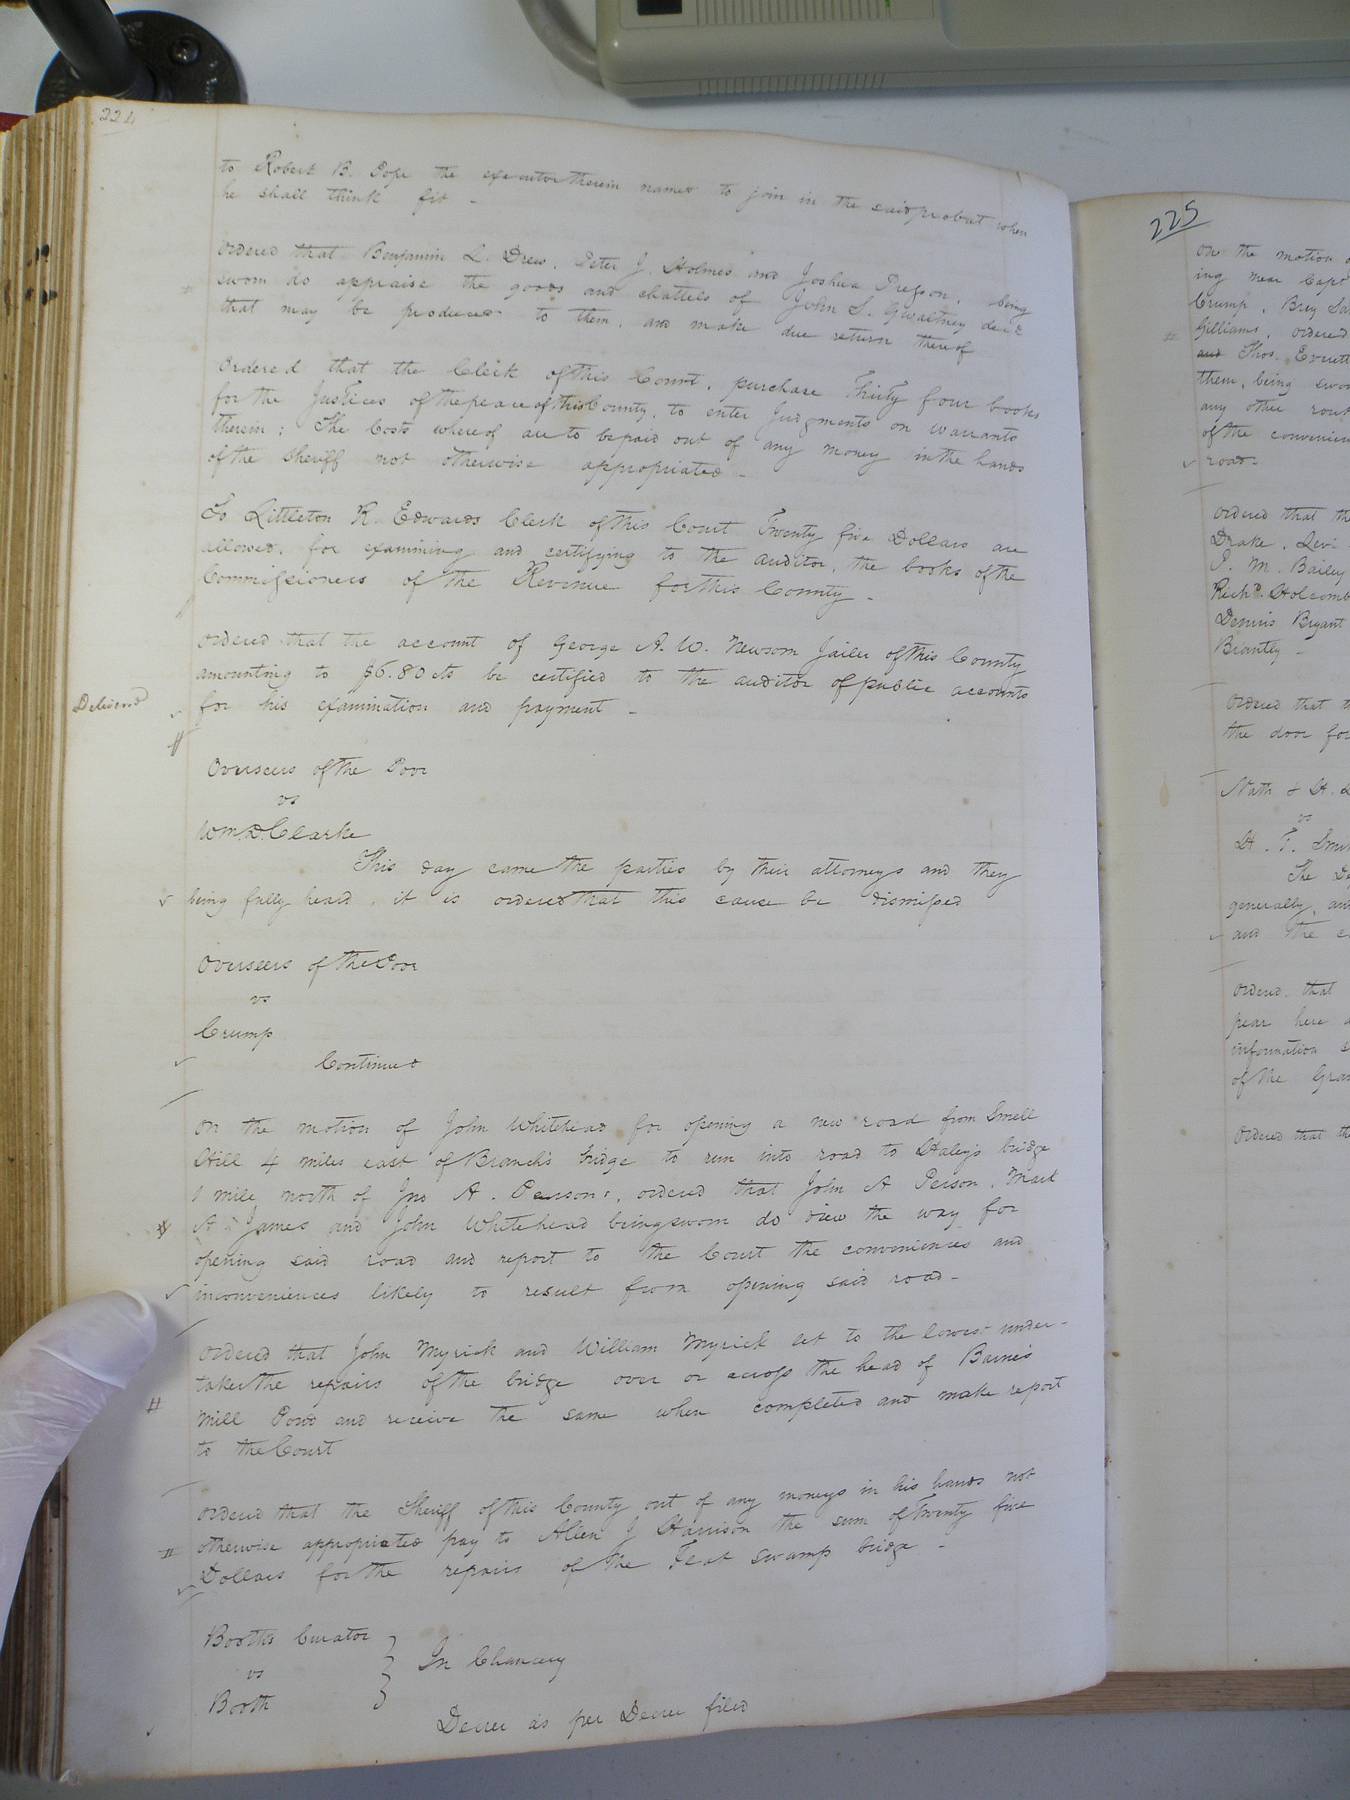 224
to Robert B. Pope the executor therein named to join in the said probat when
he shall think fit -
Ordered that Benjamin L. Drew, Peter J. Holmes and Joshua Pretson, being
sworn do appraise the goods and chattels of John S. Gwaltney decd
that may be produced to them, and make due return thereof
Ordered that the Clerk of this Court, purchase Thirty four books
for the Justices of the peace of this County, to enter Judgments on warrants
therein; The Costs whereof are to be paid out of any money in the hands
of the Sheriff not otherwise appropriated -
To Littleton R. Edwards Clerk of this Court Twenty five Dollars are
allowed, for examining and certifying to the auditor, the books of the
Commissioners of the Revenue for this County -
Ordered that the account of George A. W. Newsom Jailer of this County
amounting to $6.80 cts be certified to the auditor of public accounts
Delivered
for his examination and payment -
Overseers of the Poor
vs
Wm. D. Clarke
This day came the parties by their attorneys and they
being fully heard, it is ordered that this cause be dismissed
Overseers of the Poor
vs
Crump
Continued
On the motion of John Whitehead for opening a new road from Smell
Hill 4 miles east of Branch's bridge to run into road to Haley's bridge
1 mile north of Jno A. Persons, ordered that John A Person, Mark
A James and John Whitehead being sworn do view the way for
opening said road and report to the Court the conveniences and
inconveniences likely to result from opening said road -
Ordered that John Myrick and William Myrick let to the lowest under-
taker the repairs of the bridge over or across the head of Barnes
Mill Pond and receive the same when completed and make report
to the Court
Ordered that the Sheriff of this County out of any moneys in his hands not
otherwise appropriated pay to Allen J Harrison the sum of Twenty five
Dollars for the repairs of the Flat swamp bridge -
Booth's Curator
vs
Booth
In Chancery
Decree as per Decree filed
225
On the motion
ing near Capt
Crump, Brey
Gilliams, ordered
and Thos. Everett
them, being
any other
of the
road -
Ordered that
Drake, Levi
P. M. Bailey
Richd. Holcomb
Dennis Bryant
Brantley -
Ordered that
the door for
Nath & H.
vs
H. T.
The
generally,
and the
Ordered that
pear here
information
of the
Ordered that